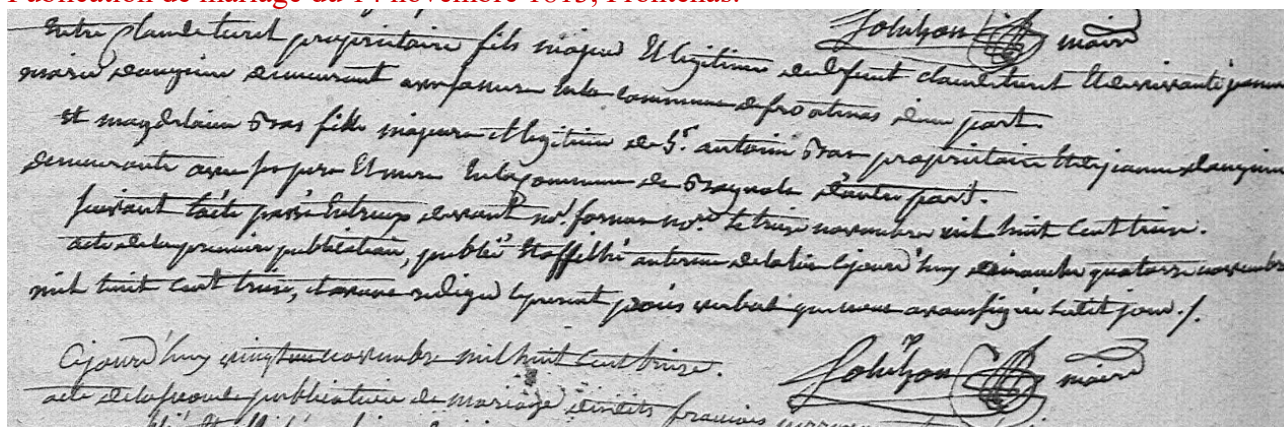 Publication de mariage du 14 novembre 1813, Frontenas.
maire
Entre Claude turet propriétaire fils majeur Et légitime de defunt claude turet Et de vivante jeanne
marie danguin demeurant avec sa mere en la commune de frontenas d'une part
et magdelaine Bras fille majeure et legitime de Sr. antoine Bras propriétaire Et de jeanne danguin
demeurante avec ses pere Et mere En la commune de Bagnols d'autre part.
suivant l'acte passé Entreux devant me. no.re Le treize novembre mil huit Cent treize.
acte de la premiere publication, publié Et affiché au terme de la loi Cejourd'huy dimanche quatorze novembre
mil huit Cent treize, et avons redigé le present procès verbal que nous avons signé Ledit jour ./.
Cejourd'huy vingt un novembre mil huit Cent treize.
maire
acte de la seconde publication de mariage desdits françois